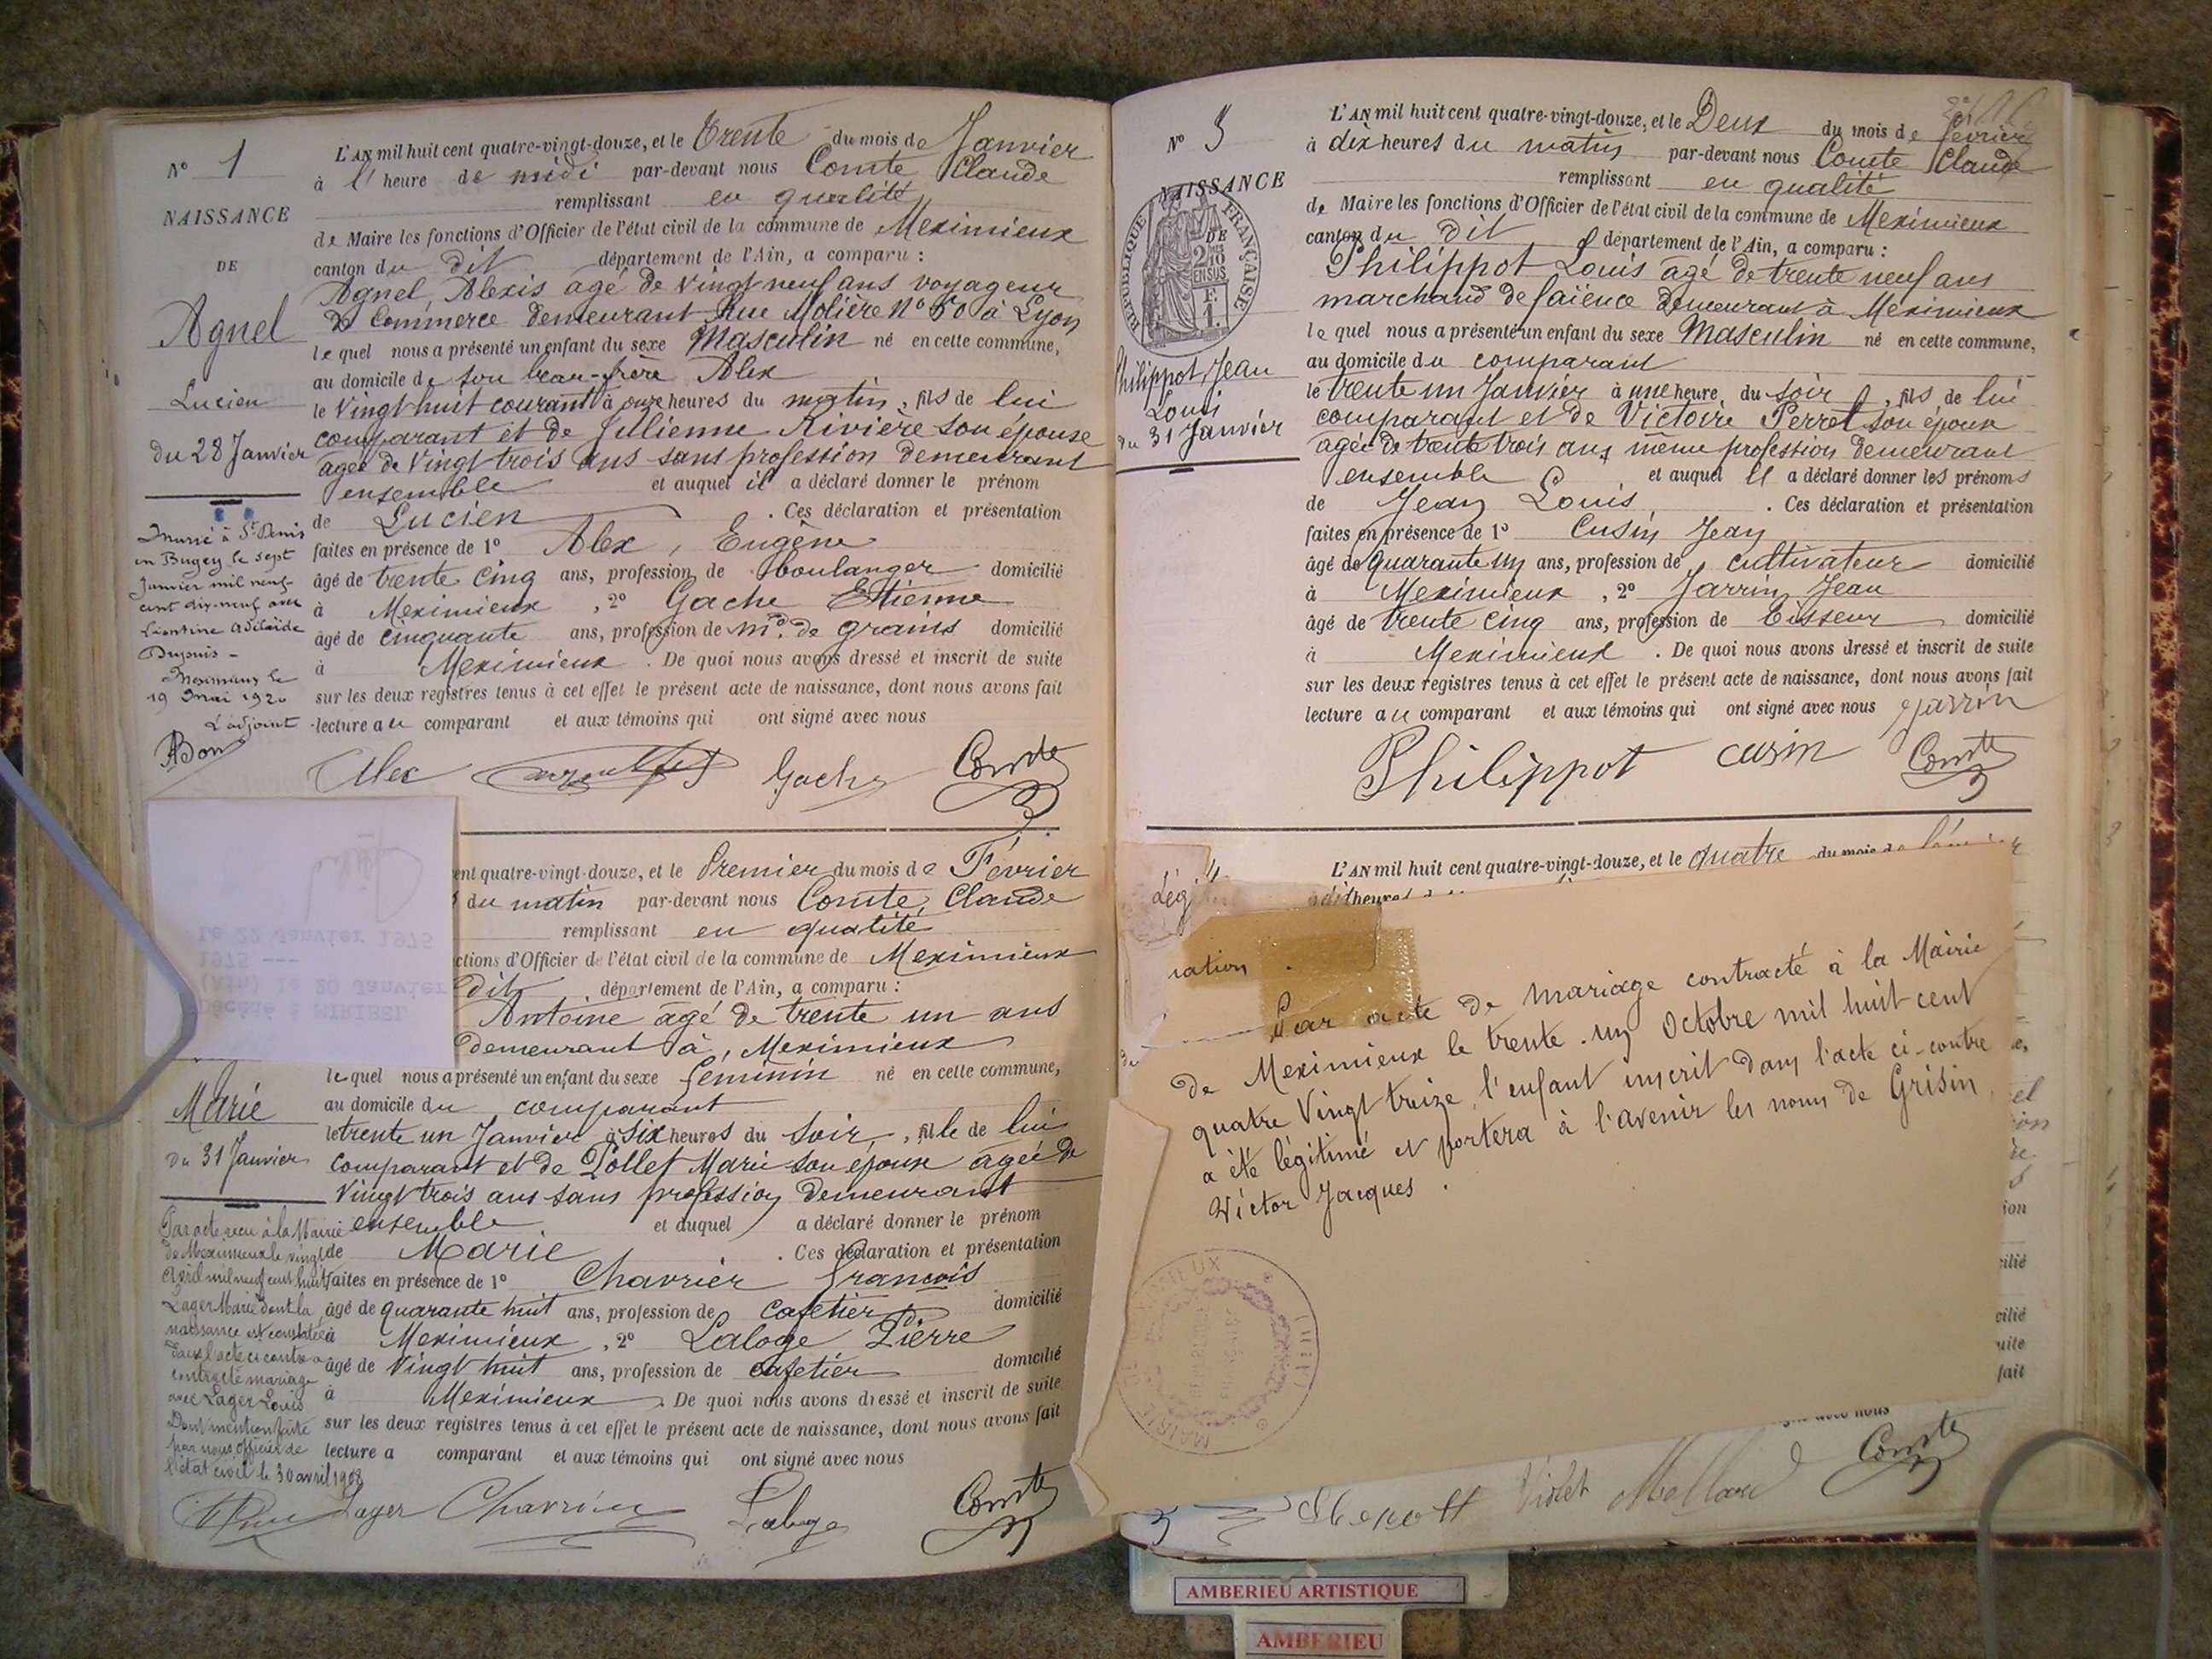 L'AN mil huit cent quatre-vingt-douze, et le Trente du mois de Janvier
à l' heure de midi par-devant nous Comte Claude
remplissant en qualité
de Maire les fonctions d'Officier de l'état civil de la commune de Meximieux
canton du dit département de l'Ain, a comparu :
Agnel, Alexis âgé de vingt neuf ans voyageur
de Commerce demeurant Rue Molière N° 60 à Lyon
lequel nous a présenté un enfant du sexe Masculin né en cette commune,
au domicile de son beau-frère Alex
le Vingt huit courant à onze heures du matin, fils de lui
comparant et de Julienne Rivière son épouse
agée de Vingt trois ans sans profession demeurant
ensemble et auquel il a déclaré donner le prénom
de Lucien . Ces déclaration et présentation
faites en présence de 1° Alex, Eugène
âgé de trente cinq ans, profession de boulanger domicilié
à Meximieux, 2° Gache Etienne
âgé de cinquante ans, profession de md. de grains domicilié
à Meximieux . De quoi nous avons dressé et inscrit de suite
sur les deux registres tenus à cet effet le présent acte de naissance, dont nous avons fait
lecture au comparant et aux témoins qui ont signé avec nous
Alex Gache Comte
N° 1
NAISSANCE
DE
Agnel
Lucien
du 28 Janvier
Marié à St Denis
en Bugey le sept
Janvier mil neuf
cent dix-neuf avec
Léontine Adélaïde
Dupuis -
Meximieux le
19 Mai 1920
L'adjoint
ent quatre-vingt-douze, et le Premier du mois de Février
du matin par-devant nous Comte, Claude
remplissant en qualité
ctions d'Officier de l'état civil de la commune de Meximieux
dit département de l'Ain, a comparu :
Antoine âgé de trente un ans
demeurant à Meximieux
lequel nous a présenté un enfant du sexe féminin né en cette commune,
au domicile du comparant
le trente un Janvier à six heures du soir, fille de lui
comparant et de Pollet Marie son épouse agée de
vingt trois ans sans profession demeurant
ensemble et auquel a déclaré donner le prénom
de Marie . Ces déclaration et présentation
faites en présence de 1° Charrier François
âgé de quarante huit ans, profession de cafetier domicilié
à Meximieux, 2° Laloge Pierre
âgé de vingt huit ans, profession de cafetier domicilié
à Meximieux . De quoi nous avons dressé et inscrit de suite
sur les deux registres tenus à cet effet le présent acte de naissance, dont nous avons fait
lecture a comparant et aux témoins qui ont signé avec nous
Lager Charrier Laloge Comte
Le 22 Janvier 1975
1975 ---
(Ain) le 20 Janvier
Décédé à MIRIBEL
Marie
Du 31 Janvier
Par acte reçu à la Mairie
de Meximieux le vingt
avril mil neuf cent huit
Lager Marie dont la
naissance est constatée
dans l'acte ci contre a
contracté mariage
avec Lager Louis
Dont mention faite
par nous officier de
l'état civil le 30 avril 1908
N° 3
NAISSANCE
RÉPUBLIQUE FRANÇAISE
DE
2/10
EN SUS
Philippot, Jean
Louis
du 31 Janvier
L'AN mil huit cent quatre-vingt-douze, et le Deux du mois de février
à dix heures du matin par-devant nous Comte Claude
remplissant en qualité
de Maire les fonctions d'Officier de l'état civil de la commune de Meximieux
canton du dit département de l'Ain, a comparu :
Philippot Louis âgé de trente neuf ans
marchand de faïence demeurant à Meximieux
lequel nous a présenté un enfant du sexe Masculin né en cette commune,
au domicile du comparant
le trente un Janvier à une heure du soir, fils de lui
comparant et de Victoire Perret son épouse
agée de trente trois ans même profession demeurant
ensemble et auquel il a déclaré donner les prénoms
de Jean Louis . Ces déclaration et présentation
faites en présence de 1° Cusin Jean
âgé de quarante un ans, profession de cultivateur domicilié
à Meximieux, 2° Jarrin Jean
âgé de trente cinq ans, profession de tisseur domicilié
à Meximieux . De quoi nous avons dressé et inscrit de suite
sur les deux registres tenus à cet effet le présent acte de naissance, dont nous avons fait
lecture au comparant et aux témoins qui ont signé avec nous Jarrin
Philippot cusin Comte
L'AN mil huit cent quatre-vingt-douze, et le quatre du mois de
Par acte de mariage contracté à la Mairie
de Meximieux le trente-un Octobre mil huit cent
quatre Vingt treize, l'enfant inscrit dans l'acte ci-contre
a été légitimé et portera à l'avenir les noms de Grisin
Victor Jacques.
Violet Comte
AMBERIEU ARTISTIQUE
AMBERIEU